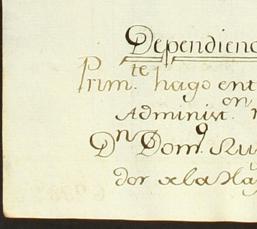 Dependienc
Prim.te hago ent
Administ.on
Dn Dom.o Ru
dor de la Ha